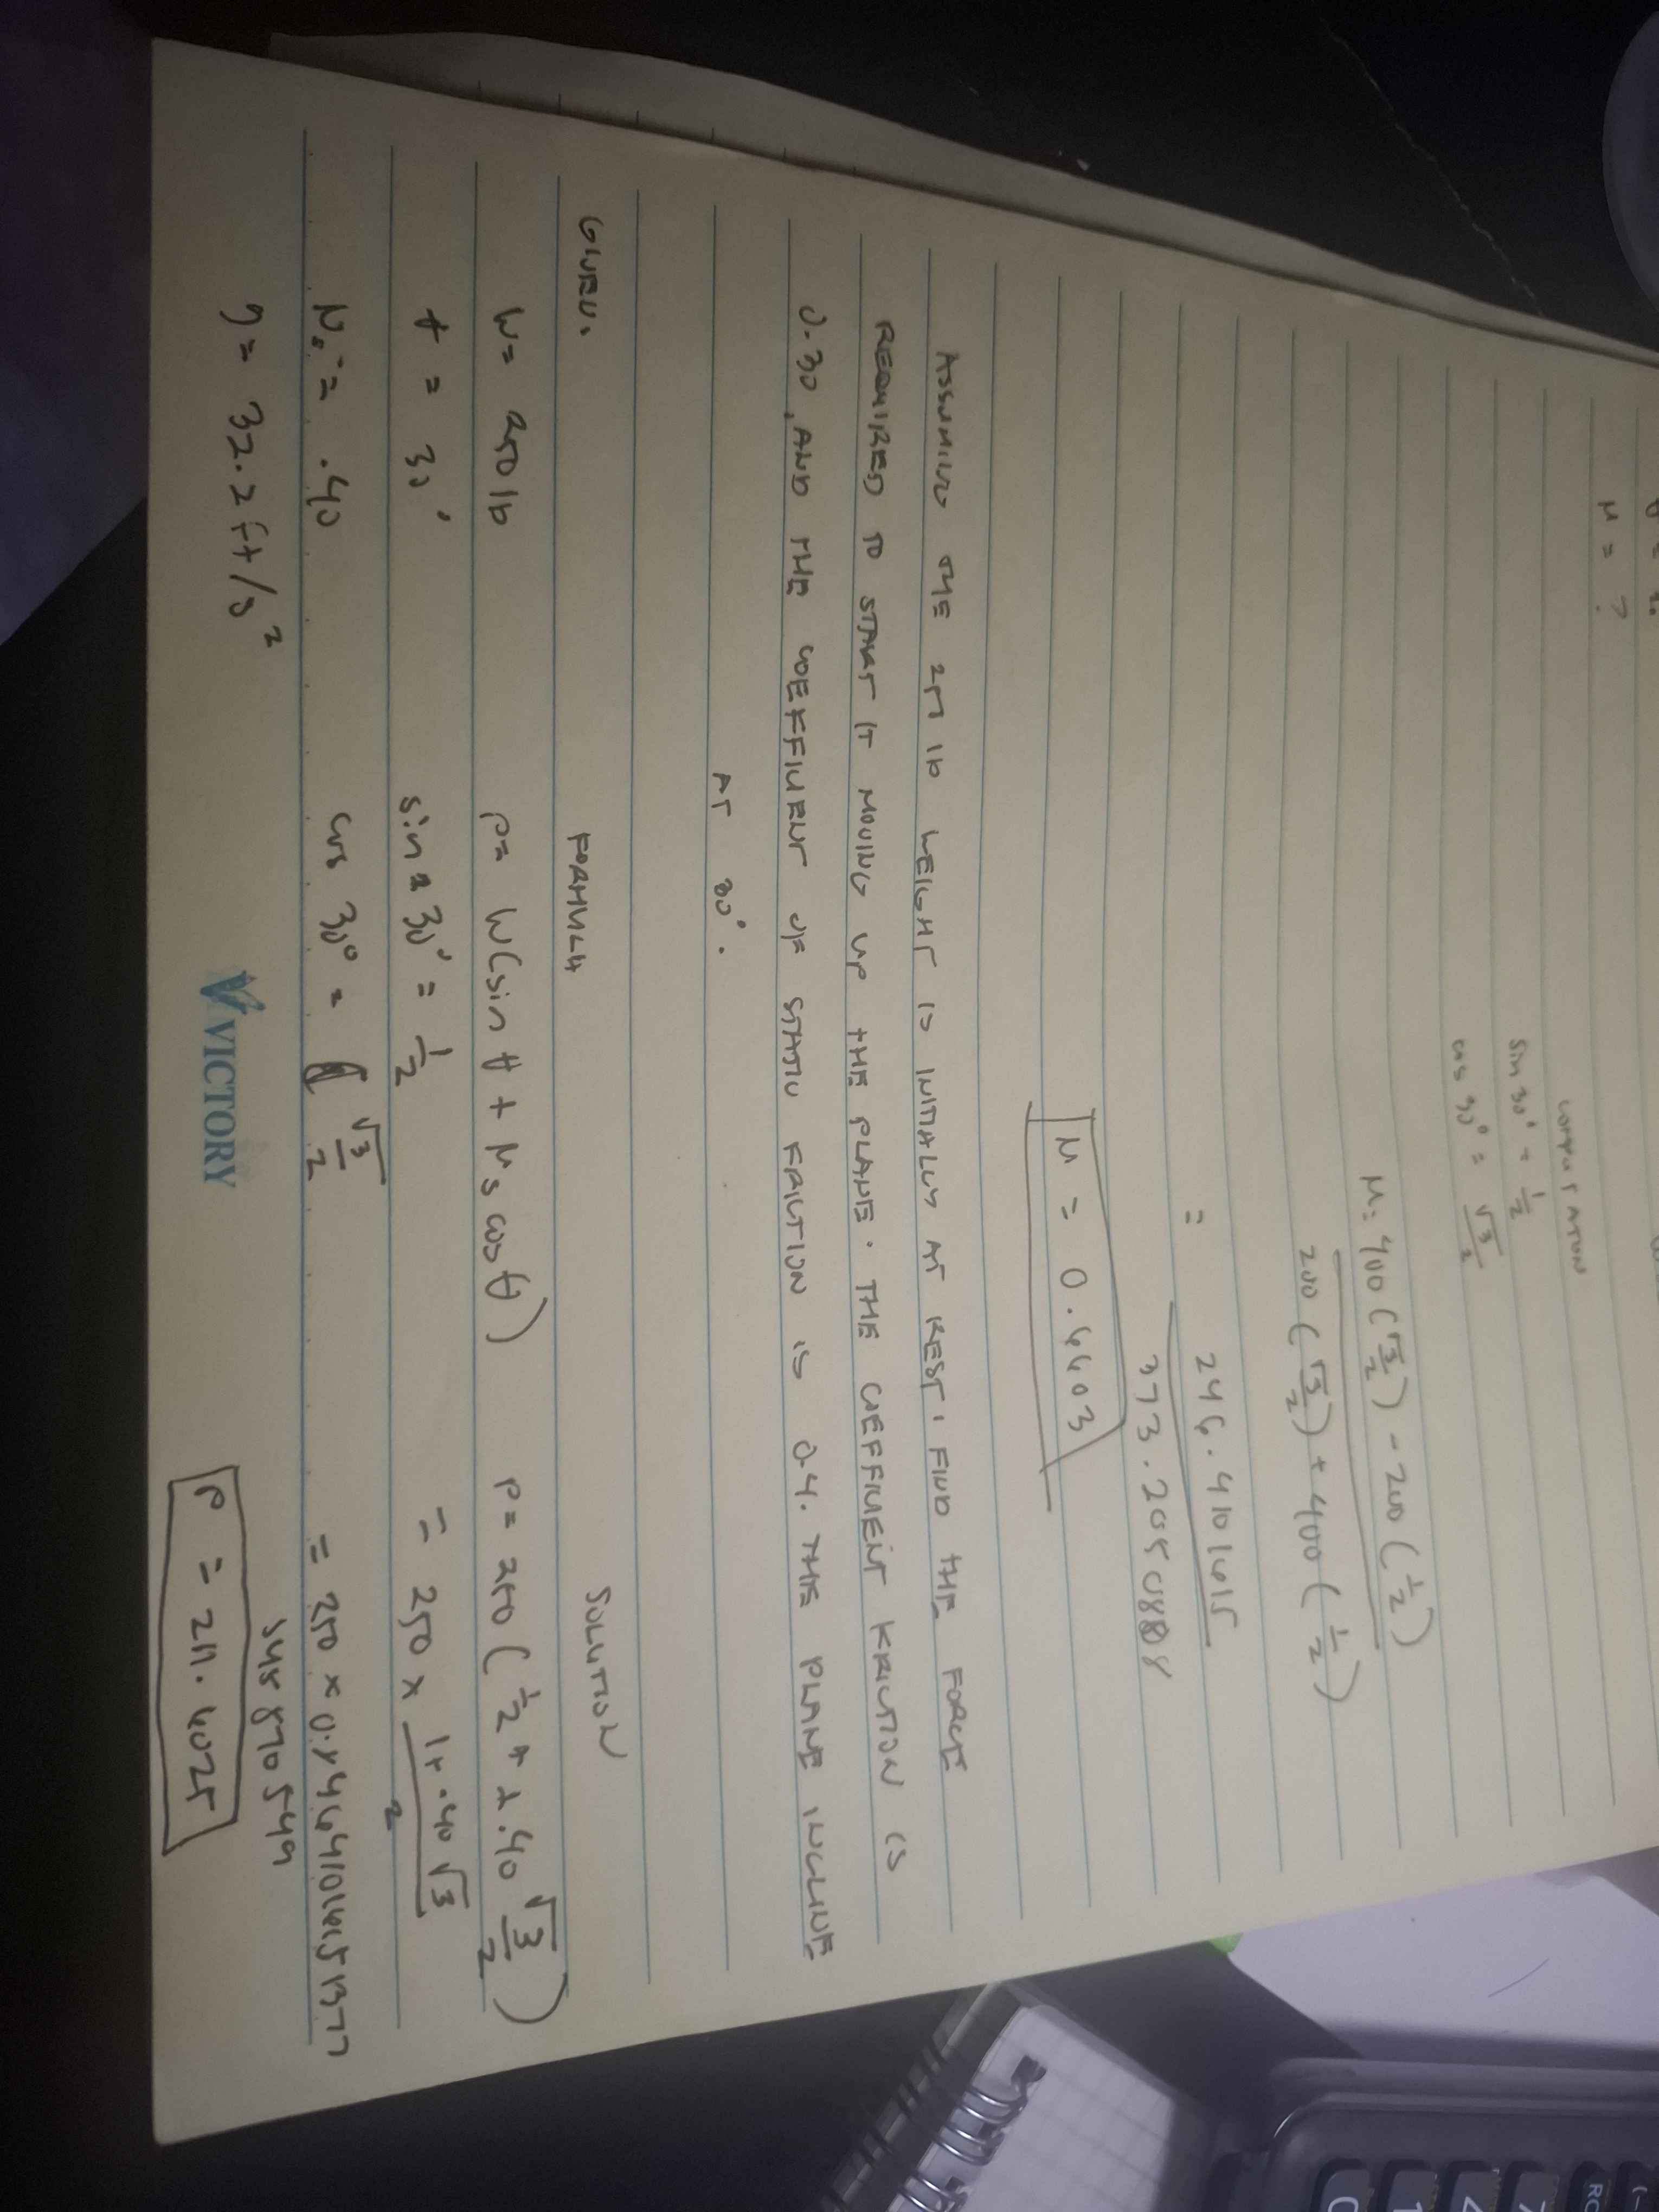 θ =
μ = ?
COMPUTATION
sin 30° = 1/2
cos 30° = √3/2
μ = 400 (√3/2) - 200 (1/2)
200 (√3/2) + 400 (1/2)
= 246.4101615
373.2050808
μ = 0.6603
ASSUMING THE 250 lb WEIGHT IS INITIALLY AT REST, FIND THE FORCE
REQUIRED TO START IT MOVING UP THE PLANE. THE COEFFICIENT FRICTION IS
0.30, AND THE COEFFICIENT OF STATIC FRICTION IS 0.4. THE PLANE INCLINE
AT 30°.
GIVEN. FORMULA SOLUTION
W = 250 lb P = W(sin θ + μs cos θ) P = 250 (1/2 + .40 √3/2)
θ = 30° sin 30° = 1/2 = 250 x 1+.40√3/2
μs = .40 cos 30° = √3/2 = 250 x 0.84641016151377
548870549
g = 32.2 ft/s² P = 211.6025
VICTORY
0
1
2